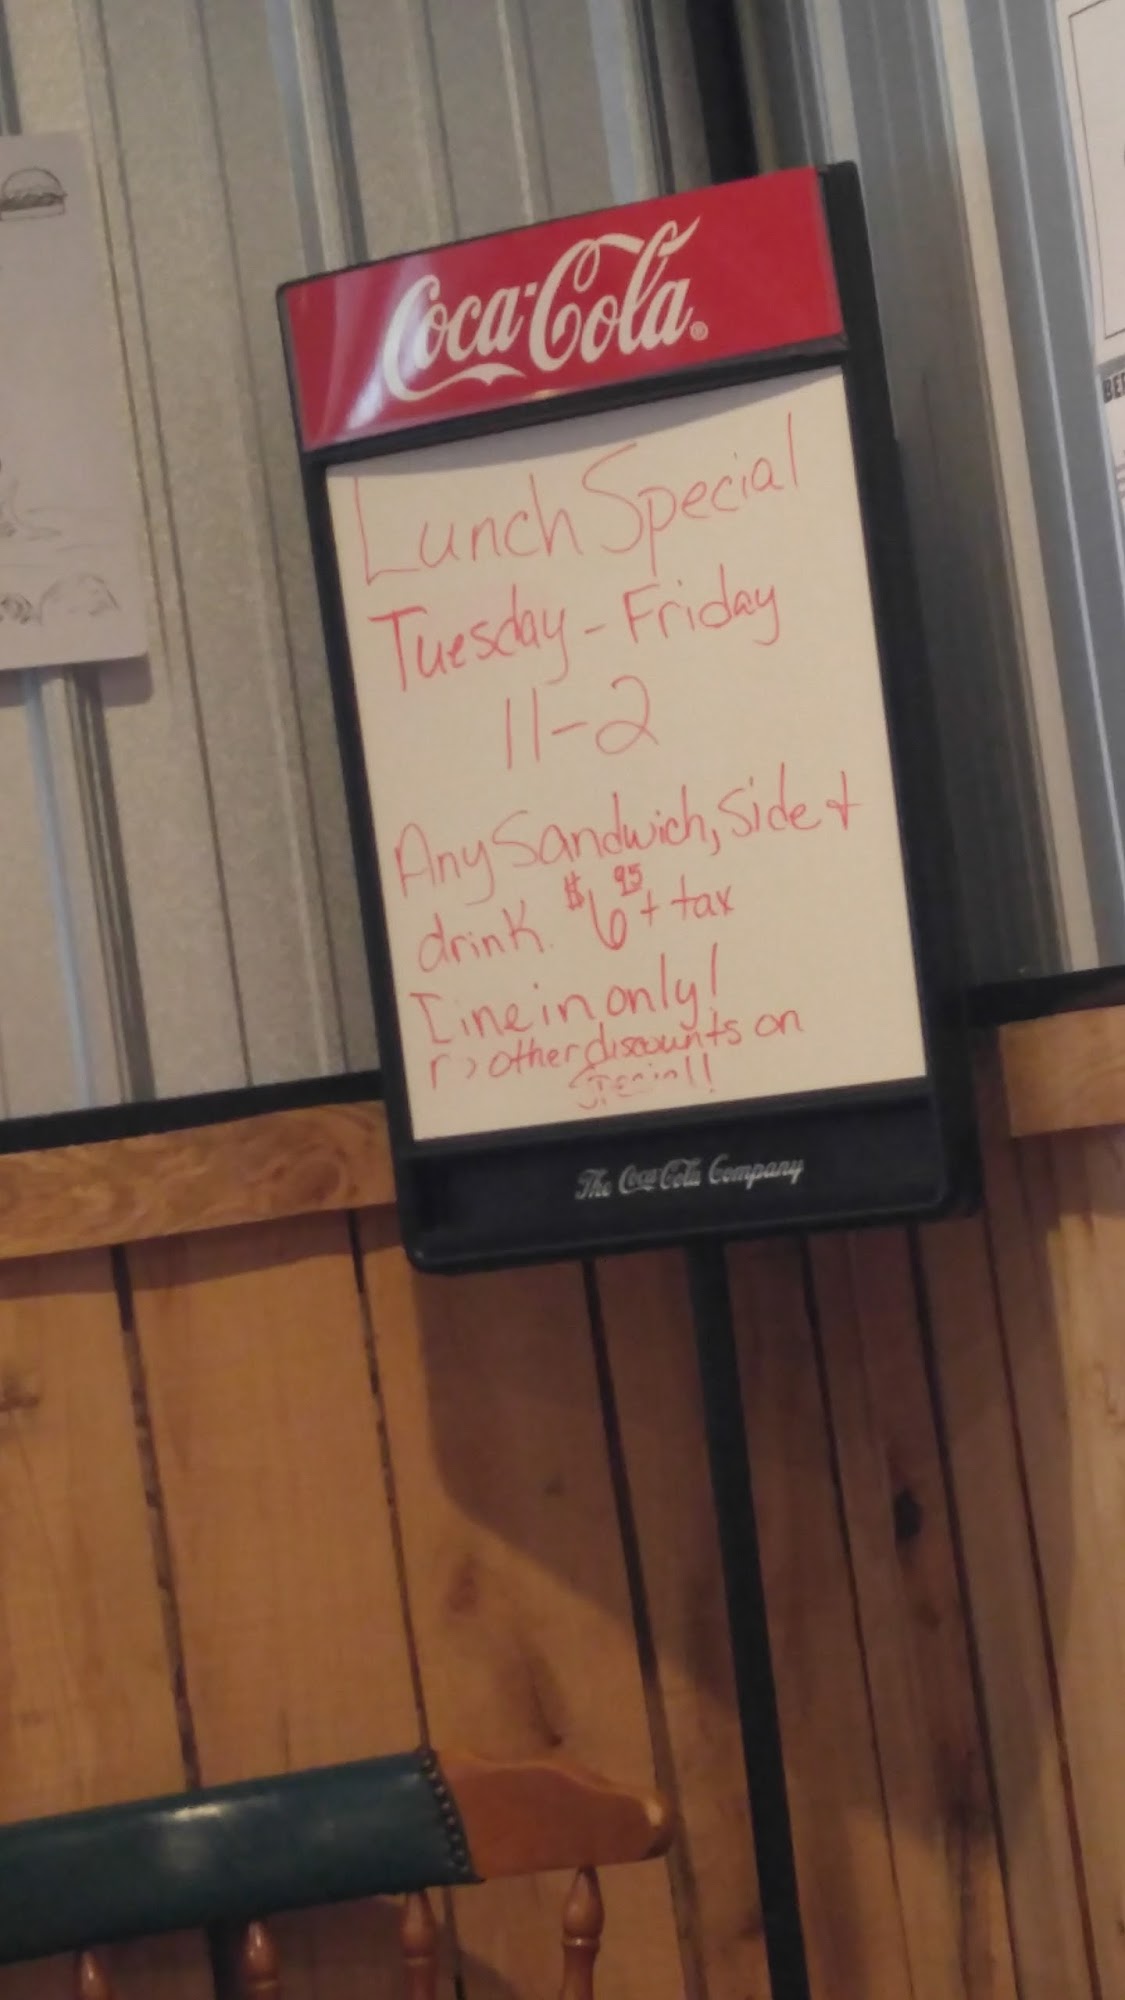 Coca-Cola
Lunch Special
Tuesday - Friday
11-2
Any Sandwich, Side +
drink. $6 95 + tax
Dine in only!
other discounts on
Special!!
The Coca-Cola Company